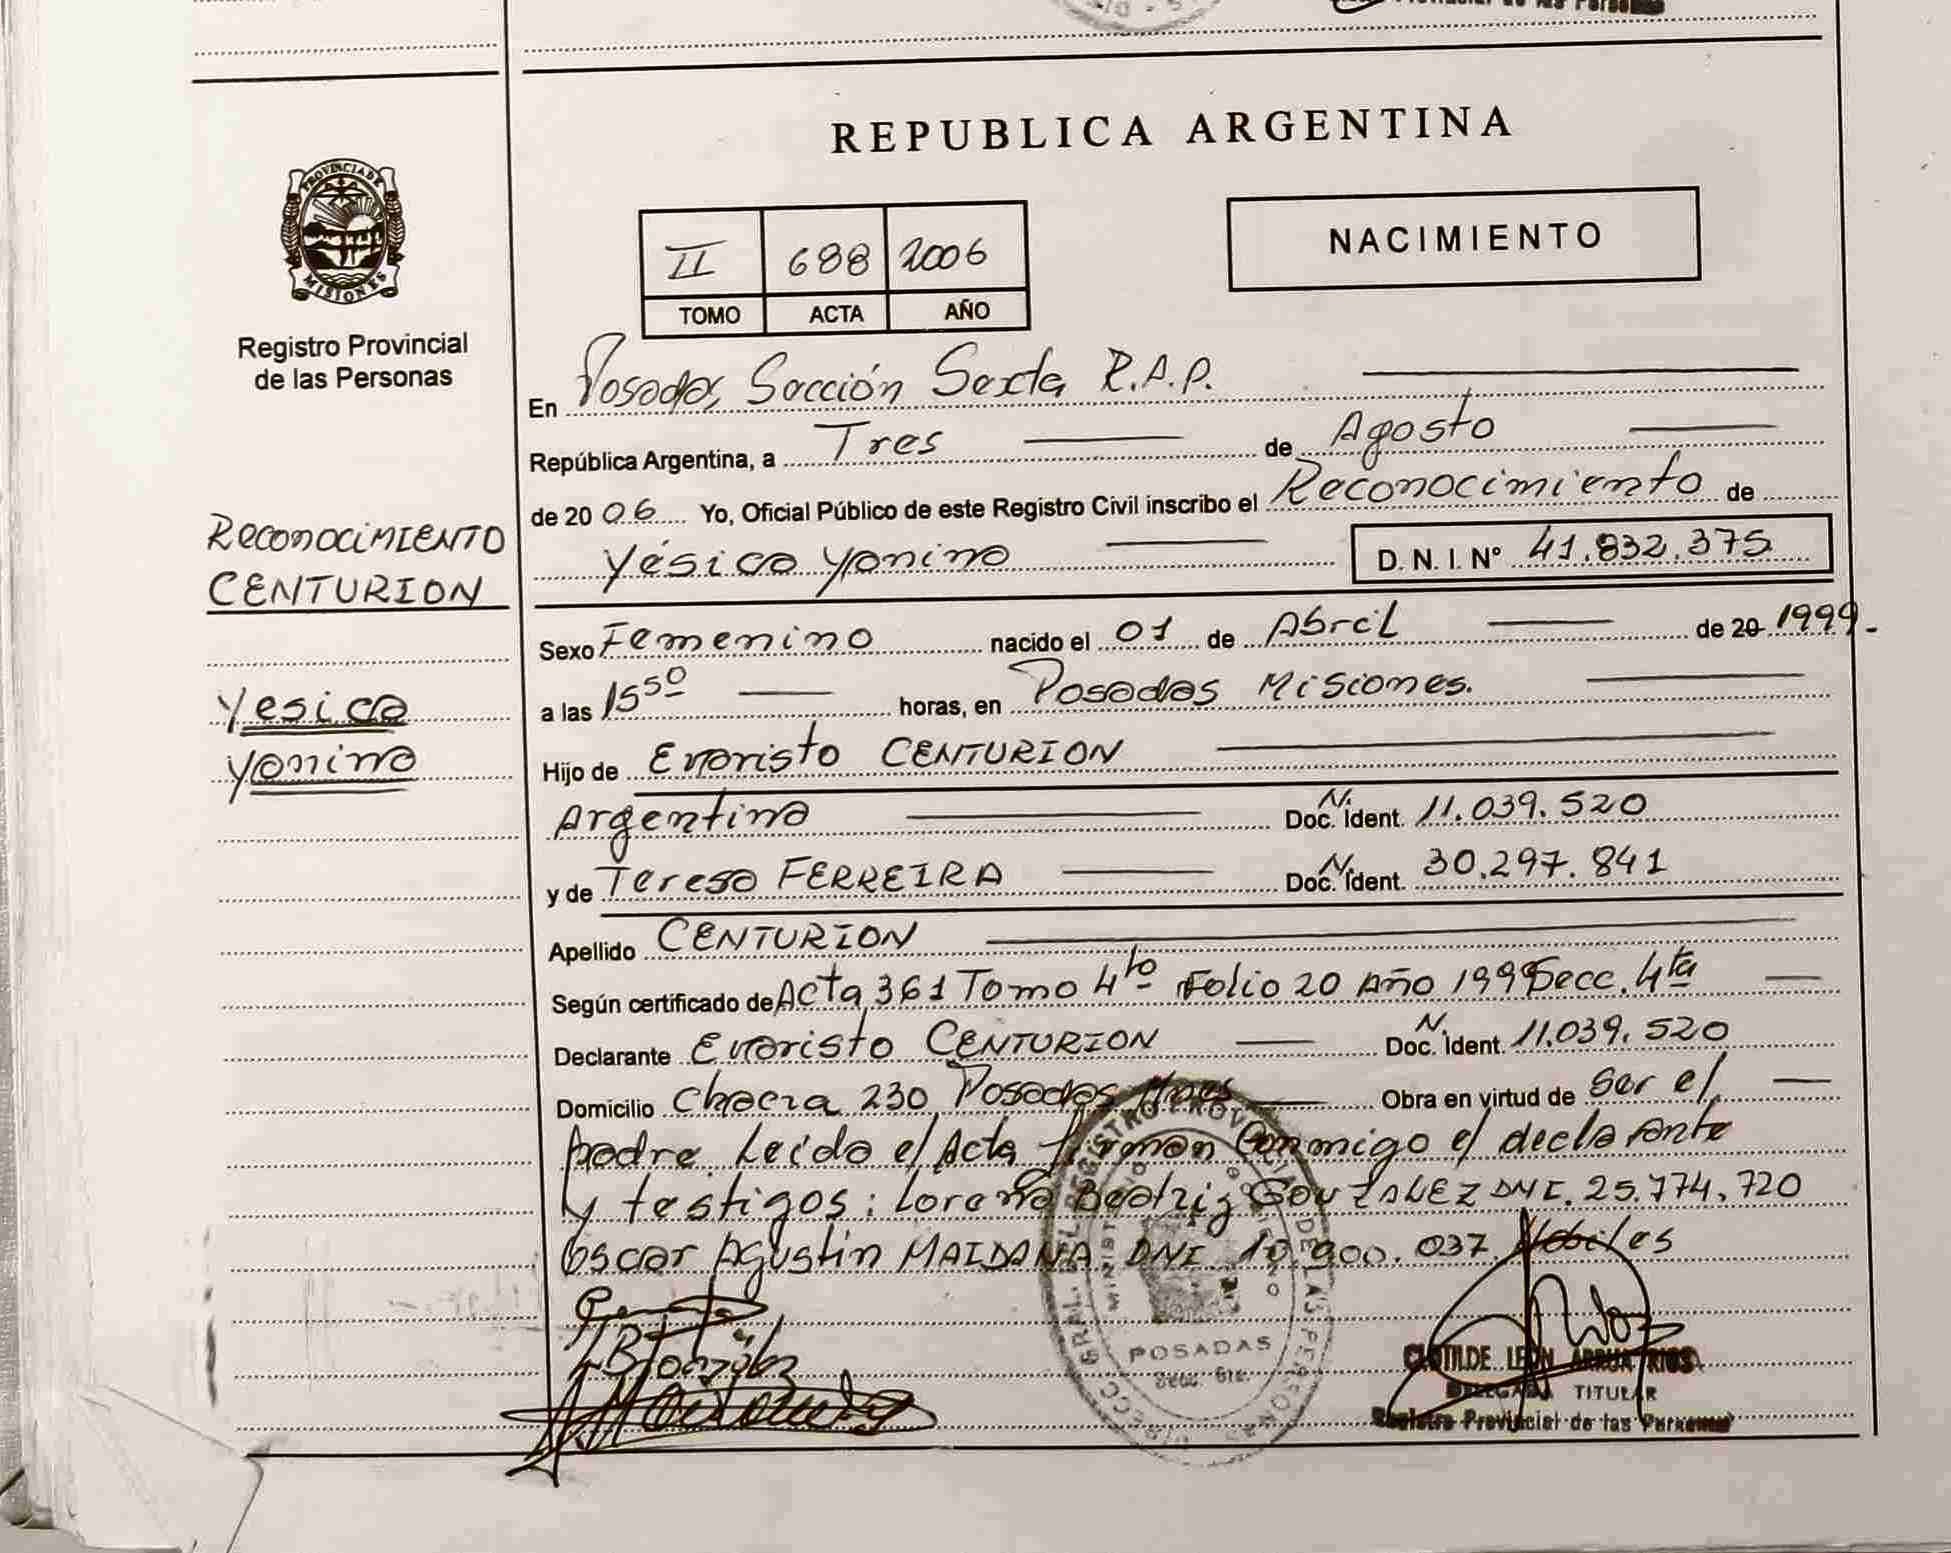 de las Personas
REPUBLICA ARGENTINA
PROVINCIA DE
MISIONES
Registro Provincial
de las Personas
II 688 2006
TOMO ACTA AÑO
NACIMIENTO
En Posadas, Sección Sexta R.A.P.
República Argentina, a Tres de Agosto
de 2006 Yo, Oficial Público de este Registro Civil inscribo el Reconocimiento de
Reconocimiento
CENTURION
Yésica Yanina D. N. I. Nº 41.832.375
Sexo Femenino nacido el 01 de Abril de 20 1999.-
Yesica
Yanina
a las 15 50 horas, en Posadas Misiones.
Hijo de Evaristo CENTURION
Argentina Doc. N. Ident. 11.039.520
y de Teresa FERREIRA Doc. N. Ident. 30.297.841
Apellido CENTURION
Según certificado de Acta 361 Tomo 4to Folio 20 Año 1999 Secc. 4ta
Declarante Evaristo CENTURION Doc. N. Ident. 11.039.520
Domicilio Chacra 230 Posadas Mnes Obra en virtud de Ser el
padre. Leida el Acta firman Conmigo el declarante
y testigos: Lorena Beatriz GONZALEZ DNI. 25.774.720
Oscar Agustin MAIDANA DNI 10.900.037.
POSADAS
Secc. 6ta.
CLOTILDE LEON ARRUA RIOS
DELEGADA TITULAR
Registro Provincial de las Personas